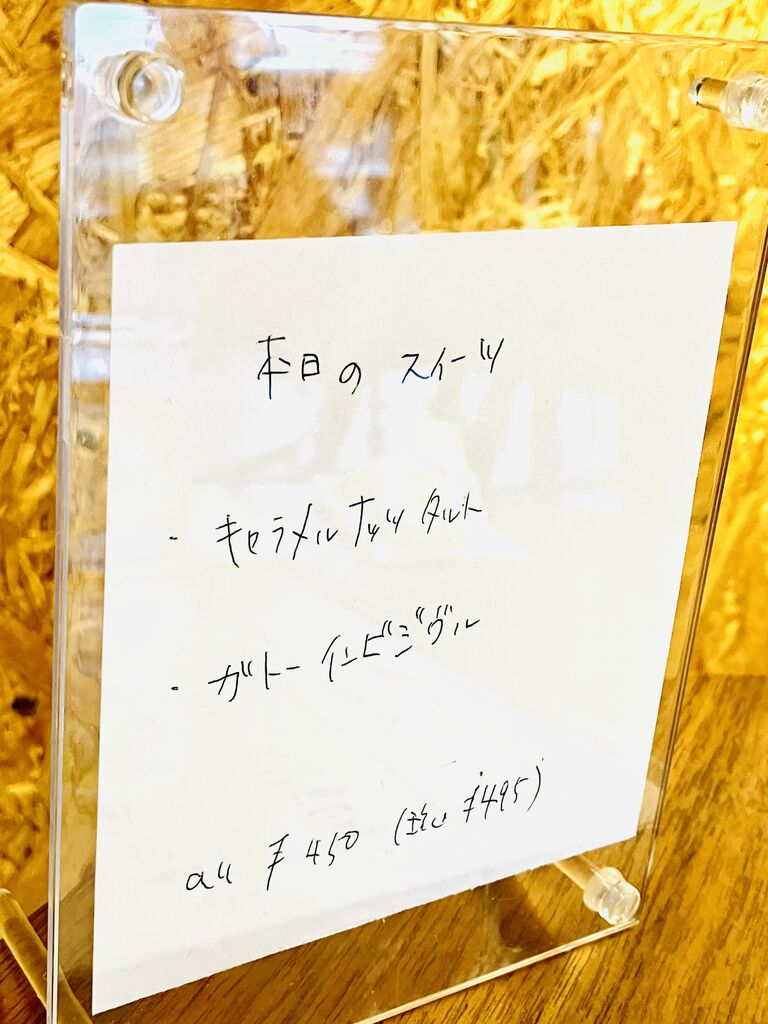 本日の スイーツ
・ キャラメルナッツタルト
・ ガトーインビジヴル
all ¥450 (税込 ¥495)